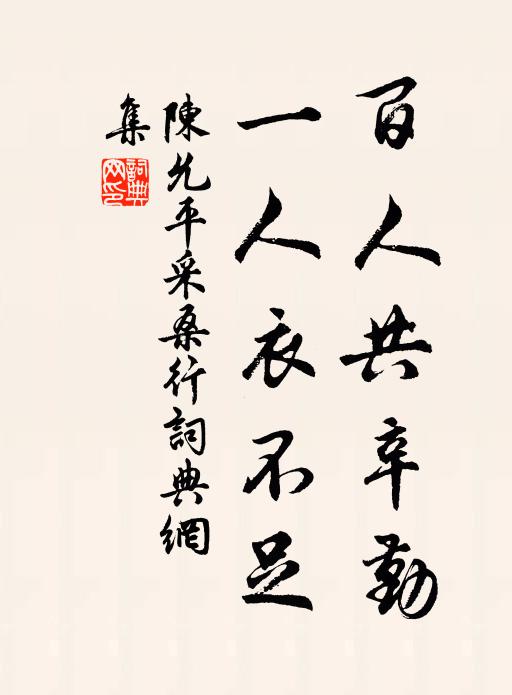 百人共辛勤
一人衣不足
陳允平采桑行詞典網
集
詞典
网印